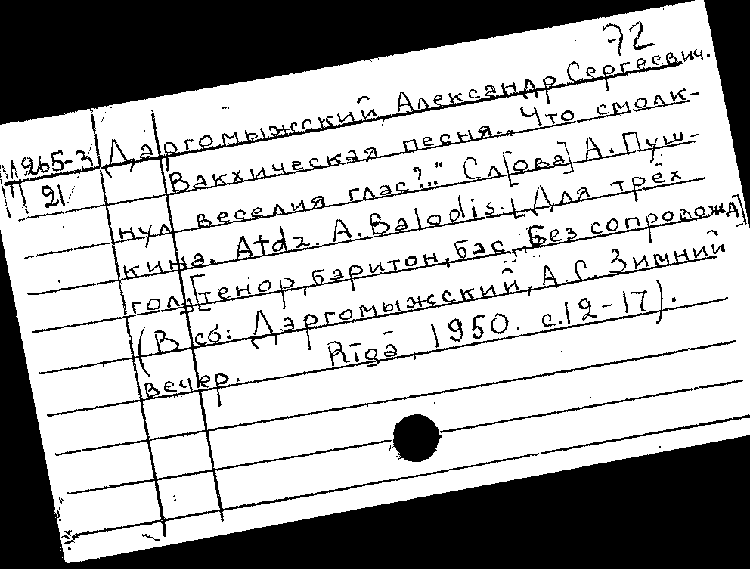 72
М965-3 Даргомыжский, Александр Сергеевич.
П 21 Вакхическая песня. „Что смолк-
нул веселия глас?.." Сл[ова] А. Пуш-
кина. Atdz. A. Balodis. [Для трёх
гол. [тенор, баритон, бас. Без сопровожд]
(В сб: Даргомыжский, А. С. Зимний
вечер. Rīgā, 1950. с. 12-17).